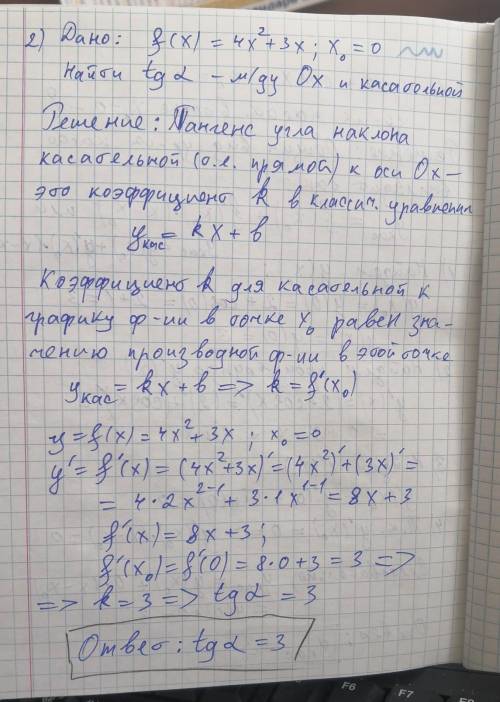 2) Дано: f(x) = 4x² + 3x; x₀ = 0
Найти tg α – м/ду Ox и касательной
Решение: Тангенс угла наклона
касательной (о.е. прямой) к оси Ox –
это коэффициент k в классич. уравнении
y кас = kx + b
Коэффициент k для касательной к
графику ф-ии в точке x₀ равен зна-
чению производной ф-ии в этой точке
y кас = kx + b => k = f'(x₀)
y = f(x) = 4x² + 3x; x₀ = 0
y' = f'(x) = (4x² + 3x)' = (4x²)' + (3x)' =
= 4·2x²⁻¹ + 3·1x¹⁻¹ = 8x + 3
f'(x) = 8x + 3;
f'(x₀) = f'(0) = 8·0 + 3 = 3 =>
=> k = 3 => tg α = 3
Ответ: tg α = 3
F6 F7